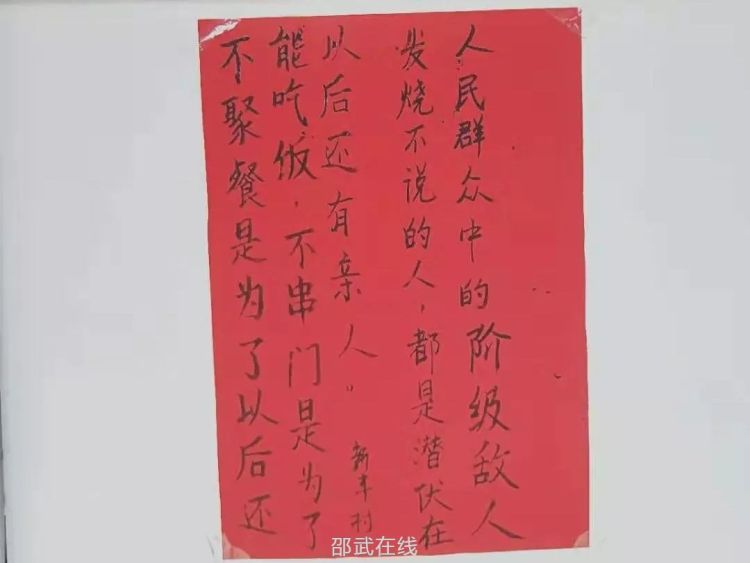 不聚餐是为了以后还
能吃饭，不串门是为了
以后还有亲人。
发烧不说的人，都是潜伏在
人民群众中的阶级敌人
邵武在线